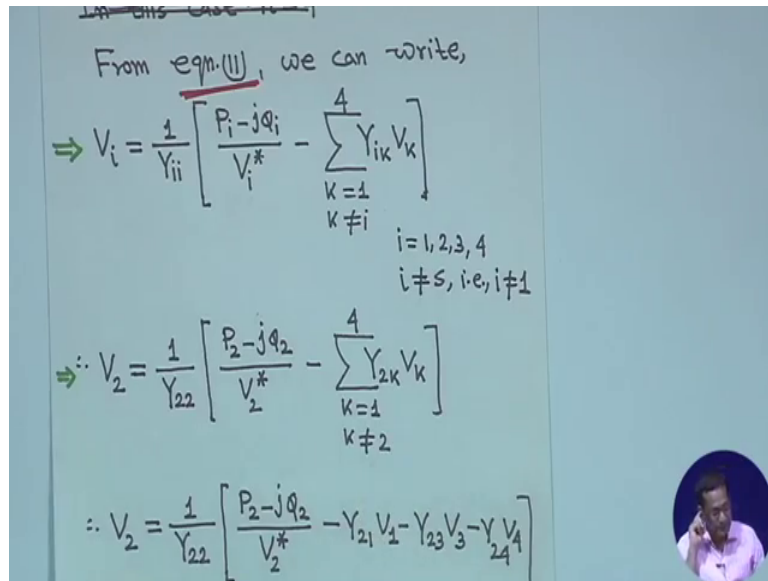 In this case
From eqn.(11), we can write,
⇒ V_i = 1/Y_ii [ (P_i - jQ_i)/V_i^* - Σ_{K=1, K≠i}^{4} Y_ik V_k ]
i = 1, 2, 3, 4
i ≠ s, i.e., i ≠ 1
⇒ ∴ V_2 = 1/Y_22 [ (P_2 - jQ_2)/V_2^* - Σ_{K=1, K≠2}^{4} Y_2K V_K ]
∴ V_2 = 1/Y_22 [ (P_2 - jQ_2)/V_2^* - Y_21 V_1 - Y_23 V_3 - Y_24 V_4 ]